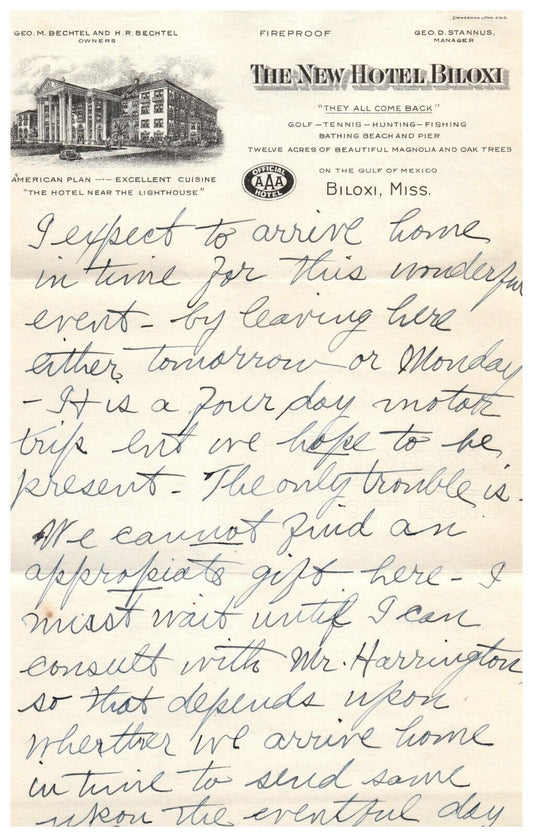 GEO. M. BECHTEL AND H. R. BECHTEL
OWNERS
FIREPROOF
GEO. D. STANNUS,
MANAGER
THE NEW HOTEL BILOXI
"THEY ALL COME BACK"
GOLF – TENNIS – HUNTING – FISHING
BATHING BEACH AND PIER
TWELVE ACRES OF BEAUTIFUL MAGNOLIA AND OAK TREES
AMERICAN PLAN –– EXCELLENT CUISINE
"THE HOTEL NEAR THE LIGHTHOUSE"
OFFICIAL
AAA
HOTEL
ON THE GULF OF MEXICO
BILOXI, MISS.
I expect to arrive home
in time for this wonderful
event - by leaving here
either tomorrow or Monday
- It is a four day motor
trip but we hope to be
present - The only trouble is -
We cannot find an
appropiate gift here - I
must wait until I can
consult with Mr. Harrington
so that depends upon
wherther we arrive home
in time to send same
upon the eventful day